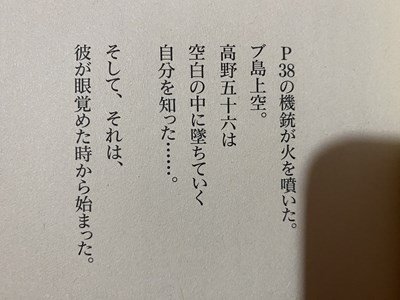 P38の機銃が火を噴いた。
ブ島上空。
高野五十六は
空白の中に墜ちていく
自分を知った……。
そして、それは、
彼が眼覚めた時から始まった。